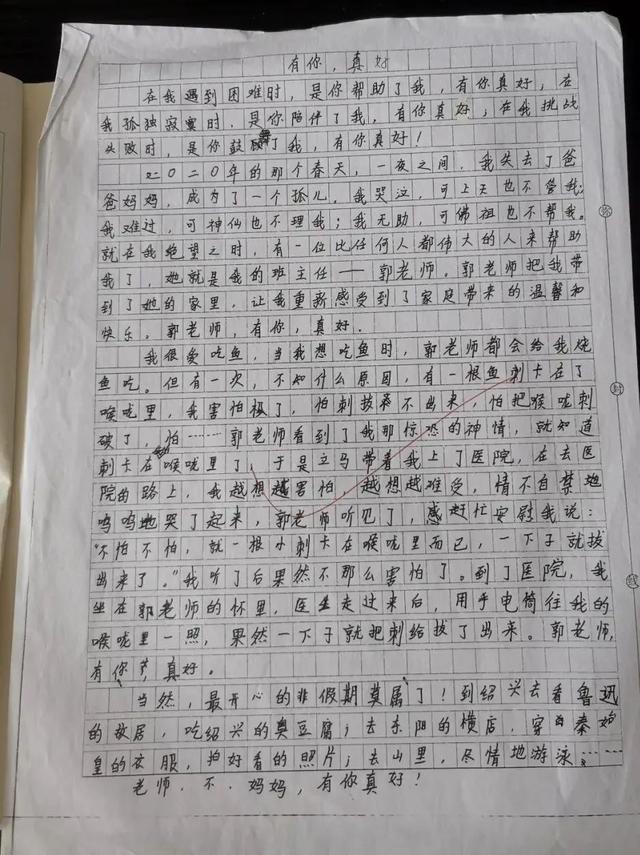 有你，真好
在我遇到困难时，是你帮助了我，有你真好，在
我孤独寂寞时，是你陪伴了我，有你真好，在我挑战
失败时，是你鼓舞了我，有你真好！
二〇二〇年的那个春天，一夜之间，我失去了爸
爸妈妈，成为了一个孤儿。我哭泣，可上天也不管我；
我难过，可神仙也不理我；我无助，可佛祖也不帮我。
就在我绝望之时，有一位比任何人都伟大的人来帮助
我了，她就是我的班主任——郭老师，郭老师把我带
到了她的家里，让我重新感受到了家庭带来的温馨和
快乐。郭老师，有你，真好．
我很爱吃鱼，当我想吃鱼时，郭老师都会给我烧
鱼吃。但有一次，不知什么原因，有一根鱼刺卡在了
喉咙里，我害怕极了，怕刺拔不出来，怕把喉咙刺
破了，怕……郭老师看到了我那惊恐的神情，就知道
刺卡在我喉咙里了，于是立马带着我上了医院，在去医
院的路上，我越想越害怕，越想越难受，情不自禁地
呜呜地哭了起来，郭老师听见了，赶忙安慰我说：
“不怕不怕，就一根小刺卡在喉咙里而已，一下子就拔
出来了。”我听了后果然不那么害怕了。到了医院，我
坐在郭老师的怀里，医生走过来后，用手电筒往我的
喉咙里一照，果然一下子就把刺给拔了出来。郭老师，
有你，真好。
当然，最开心的非假期莫属了！到绍兴去看鲁迅
的故居，吃绍兴的臭豆腐；去东阳的横店，穿秦始
皇的衣服，拍好看的照片；去山里，尽情地游泳……
老师．不．妈妈，有你真好！
密
封
线